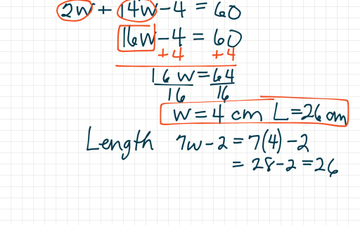 2w + 14w - 4 = 60
16w - 4 = 60
+4 +4
16w = 64
16 16
w = 4 cm L = 26 cm
Length 7w - 2 = 7(4) - 2
= 28 - 2 = 26